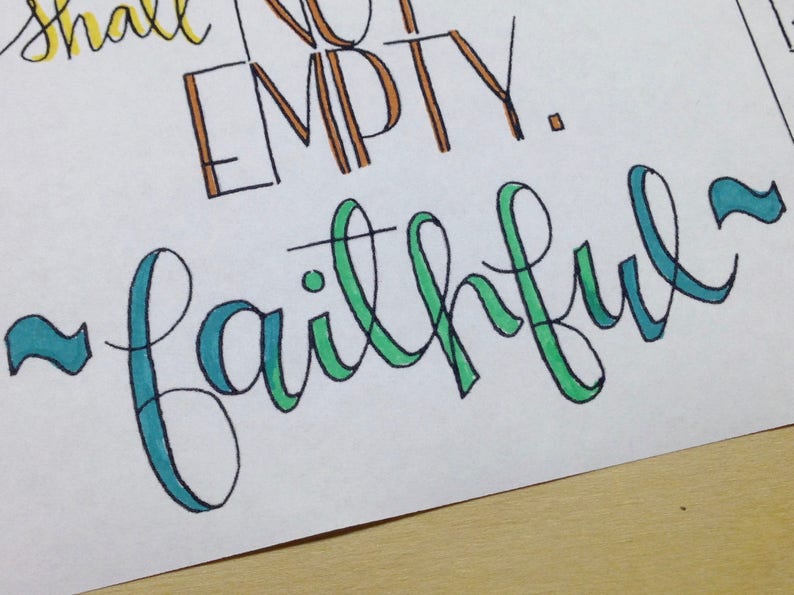 shall NOT
EMPTY.
~faithful~